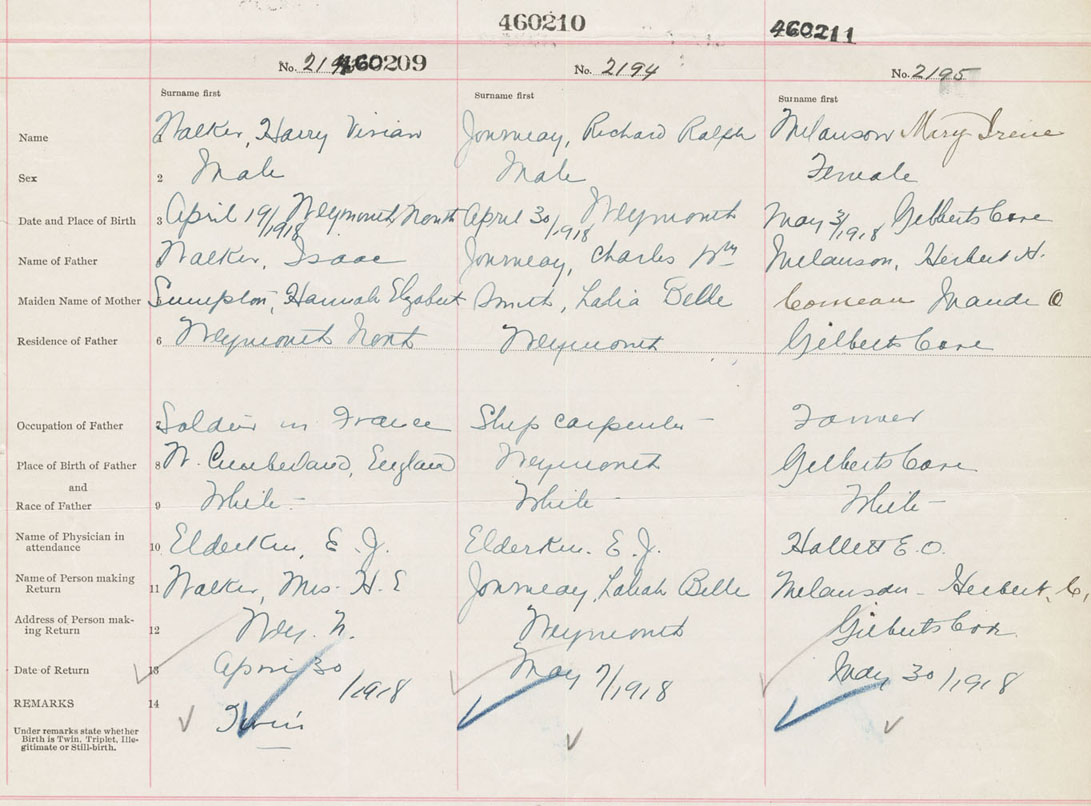 460210
460211
No. 460209
No. 2194
No. 2195
Surname first
Surname first
Surname first
Name
1 Walker, Harry Vivian
Journeay, Richard Ralph
Melanson Mary Irene
Sex
2 Male
Male
Female
Date and Place of Birth
3 April 19/1918 Weymouth North
April 30/1918 Weymouth
May 3/1918 Gilberts Cove
Name of Father
Walker, Isaac
Journeay, Charles Wm
Melanson, Herbert H.
Maiden Name of Mother
Sumpton, Hannah Elizabert
Smith, Lalia Belle
Comeau Maude O
Residence of Father
6 Weymouth North
Weymouth
Gilberts Cove
Occupation of Father
7 Soldier in France
Ship carpenter
Farmer
Place of Birth of Father
8 W. Cumberland, England
Weymouth
Gilberts Cove
and
Race of Father
9 White
White
White
Name of Physician in
attendance
10 Elderkin, E. J.
Elderkin. E. J.
Hallett E. O.
Name of Person making
Return
11 Walker, Mrs. H. E
Journeay, Laliah Belle
Melanson - Herbert,
Address of Person mak-
ing Return
12 Wey. N.
Weymouth
Gilberts Cove
Date of Return
13 April 30/1918
May 7/1918
May 30/1918
REMARKS
14
Twins
Under remarks state whether
Birth is Twin, Triplet, Ille-
gitimate or Still-birth.